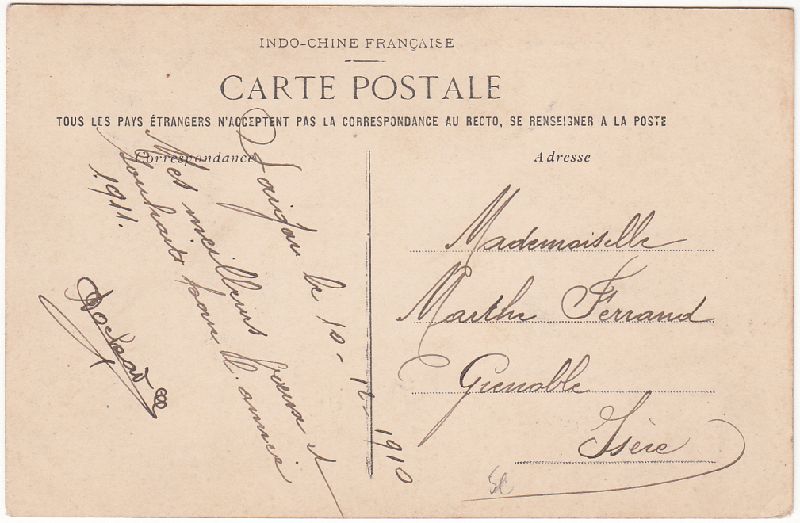 INDO-CHINE FRANÇAISE
CARTE POSTALE
TOUS LES PAYS ÉTRANGERS N'ACCEPTENT PAS LA CORRESPONDANCE AU RECTO, SE RENSEIGNER A LA POSTE
Correspondance
Saigon le 10-12-1910
Mes meilleurs vœux et
souhaits pour l'année
1911.
Adresse
Mademoiselle
Marthe Ferrand
Grenoble
Isère